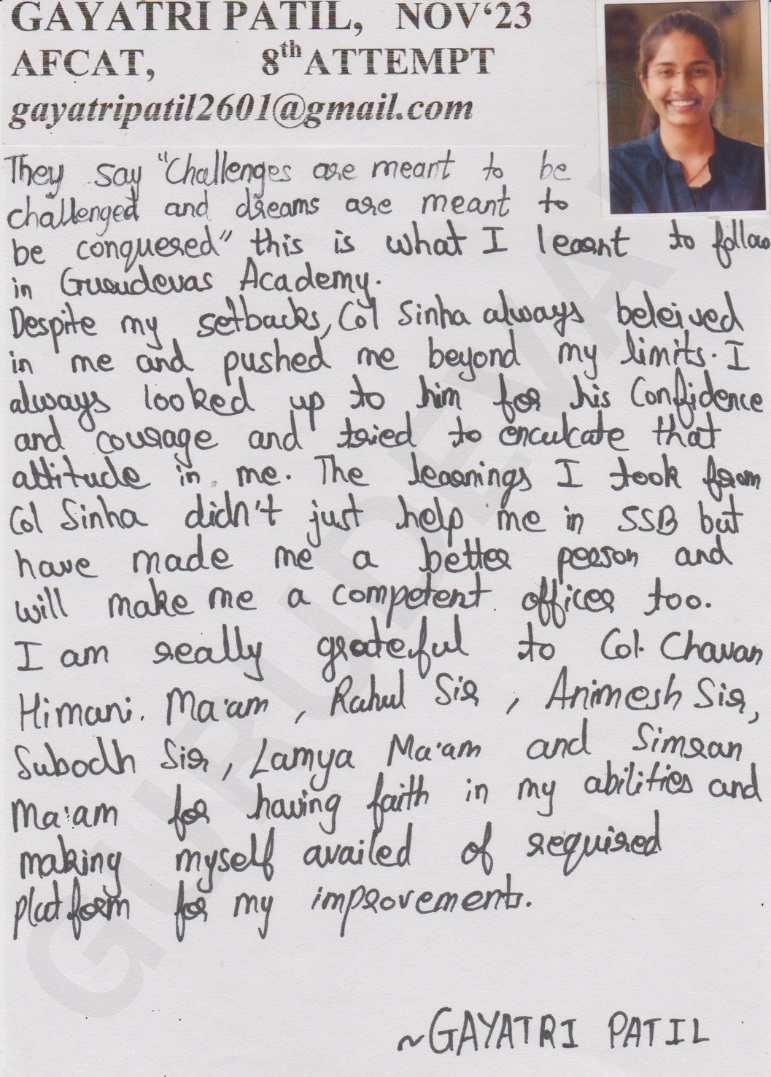 GAYATRI PATIL, NOV‘23
AFCAT, 8th ATTEMPT
gayatripatil2601@gmail.com
They say "Challenges are meant to be
challenged and dreams are meant to
be conquered" this is what I learnt to follow
in Gurudevas Academy.
Despite my setbacks, Col Sinha always beleived
in me and pushed me beyond my limits. I
always looked up to him for his Confidence
and courage and tried to enculcate that
attitude in me. The learnings I took from
Col Sinha didn't just help me in SSB but
have made me a better person and
will make me a competent officer too.
I am really grateful to Col. Chavan
Himani. Ma'am, Rahul Sir, Animesh Sir,
Subodh Sir, Lamya Ma'am and Simran
Ma'am for having faith in my abilities and
making myself availed of required
platform for my improvement.
~GAYATRI PATIL
GURUDEVA